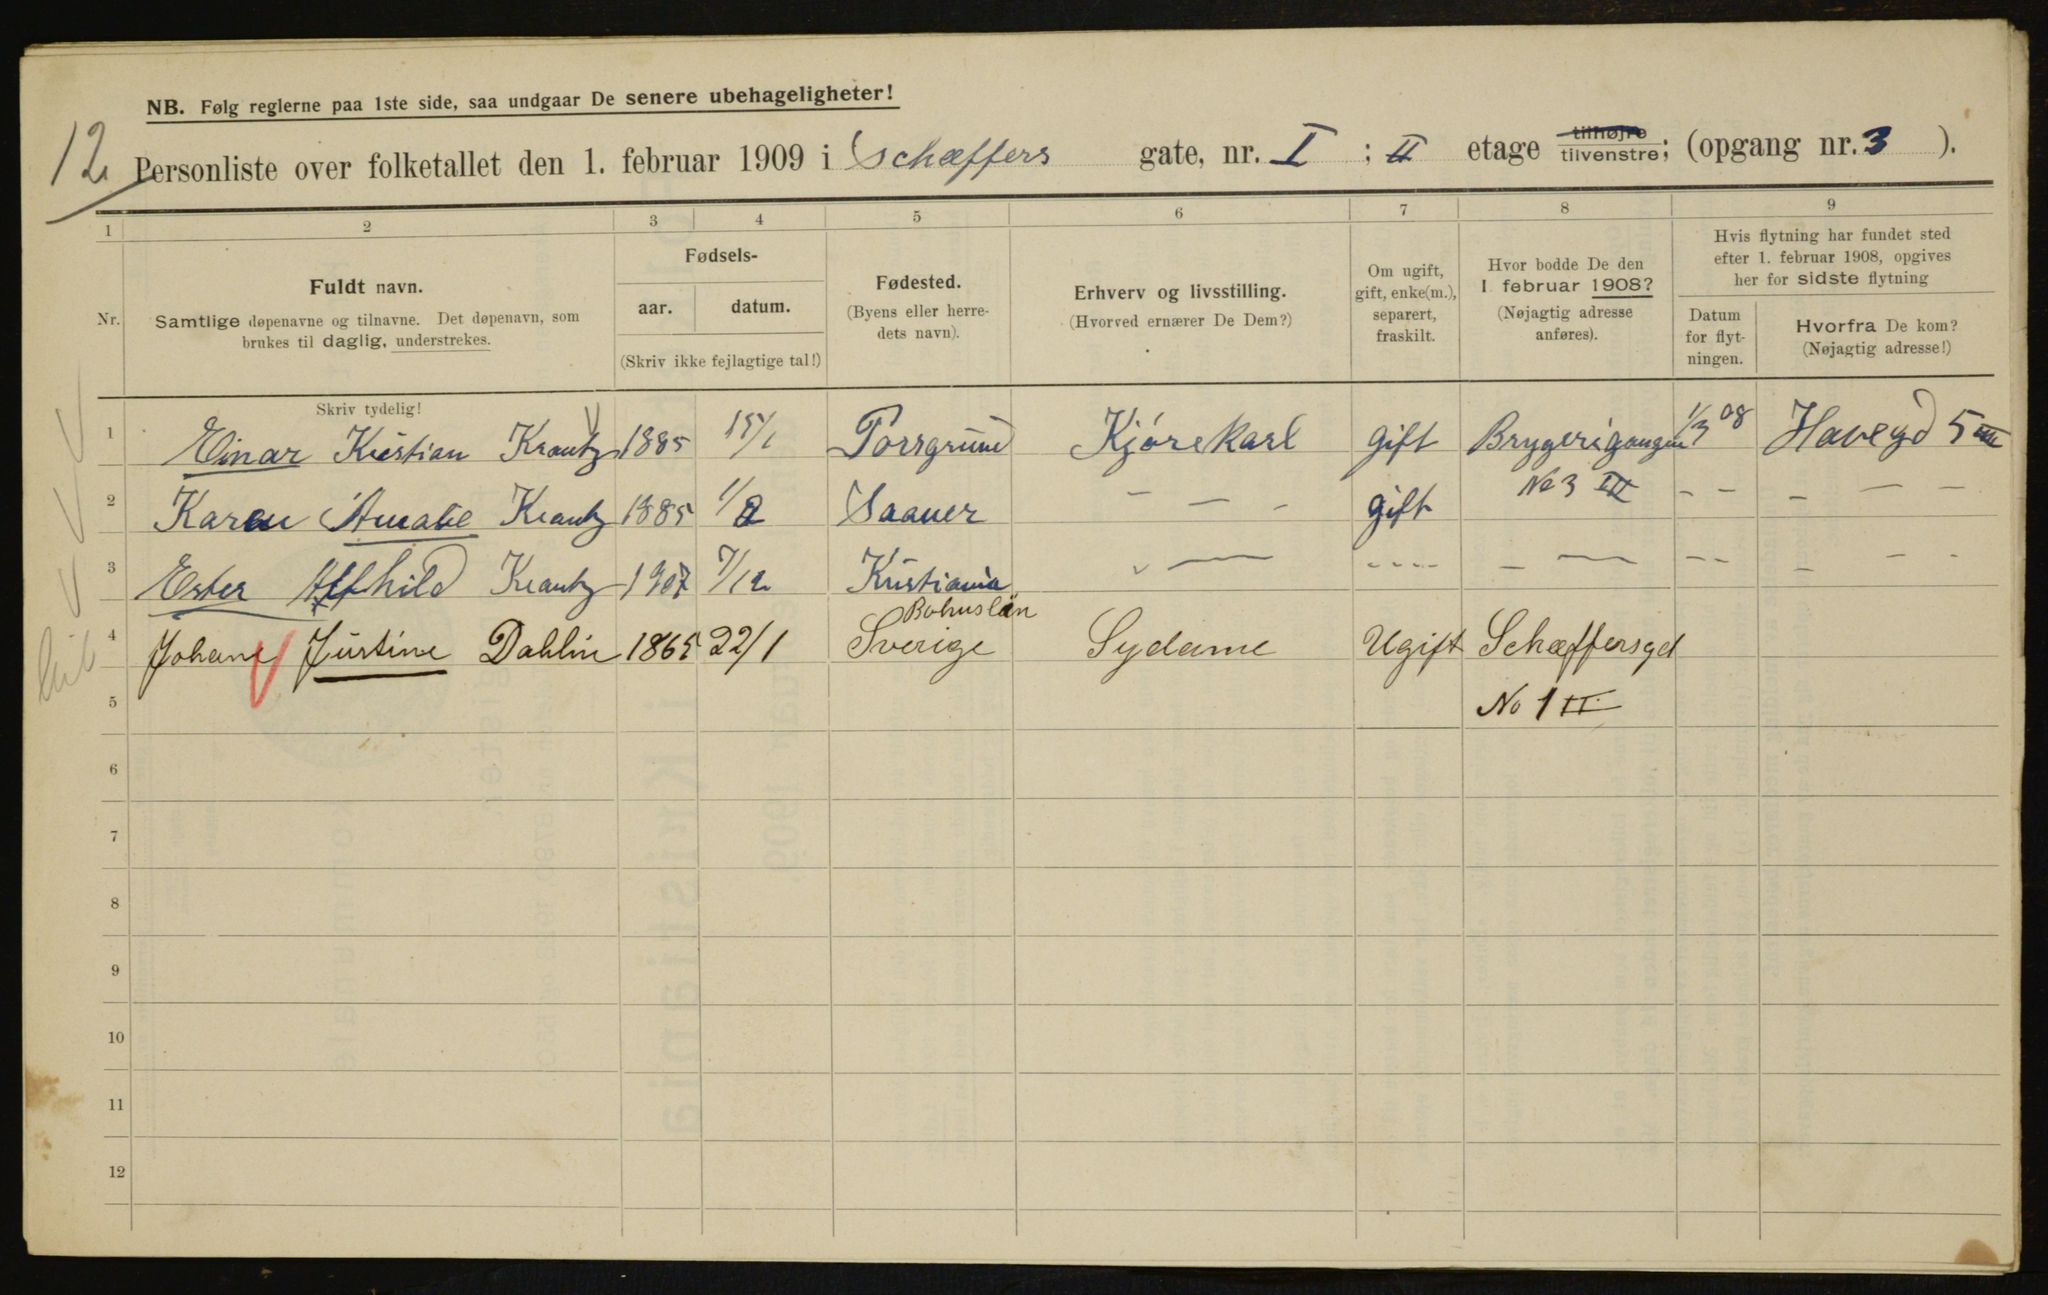 NB. Følg reglerne paa 1ste side, saa undgaar De senere ubehageligheter!
12
Personliste over folketallet den 1. februar 1909 i Schæffers gate, nr. I ; II etage tilhøjre tilvenstre; (opgang nr. 3 ).
1 2 3 4 5 6 7 8 9
Nr.
Fuldt navn.
Samtlige døpenavne og tilnavne. Det døpenavn, som
brukes til daglig, understrekes.
Skriv tydelig!
Fødsels-
aar. datum.
(Skriv ikke fejlagtige tal!)
Fødested.
(Byens eller herre-
dets navn).
Erhverv og livsstilling.
(Hvorved ernærer De Dem?)
Om ugift,
gift, enke(m.),
separert,
fraskilt.
Hvor bodde De den
1 februar 1908?
(Nøjagtig adresse
anføres).
Hvis flytning har fundet sted
efter 1. februar 1908, opgives
her for sidste flytning
Datum
for flyt-
ningen.
Hvorfra De kom?
(Nøjagtig adresse!)
1 Einar Kristian Krantz 1885 15/1 Porsgrund Kjørekarl gift Bryggerigangen 1/3 08 Havegd 5 III
2 Karen Amalie Krantz 1885 1/2 Saaner - - - gift No 3 III - - - - -
3 Ester Alfhild Krantz 1907 7/12 Kristiania - - - - - -
Bohuslän
4 Johane Justine Dahlin 1865 22/1 Sverige Sydame Ugift Schæffersgd
5 No 1 II
6
7
8
9
10
11
12